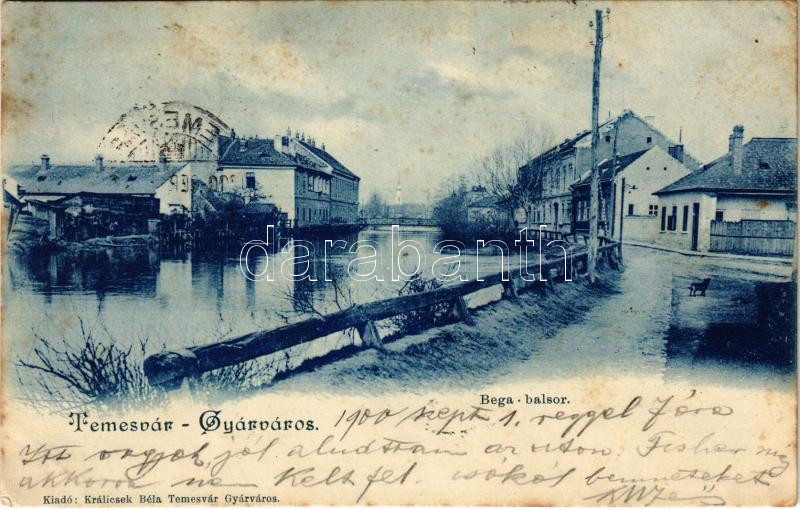 TEMES
darabanth
Bega - balsor.
Temesvár - Gyárváros. 1900 szept 1. reggel 7 óra
Itt vagyok, jól aludttam az uton. Fisher még
akkor nem kelt fel. csokol benneteket
Kiadó: Králicsek Béla Temesvár Gyárváros.